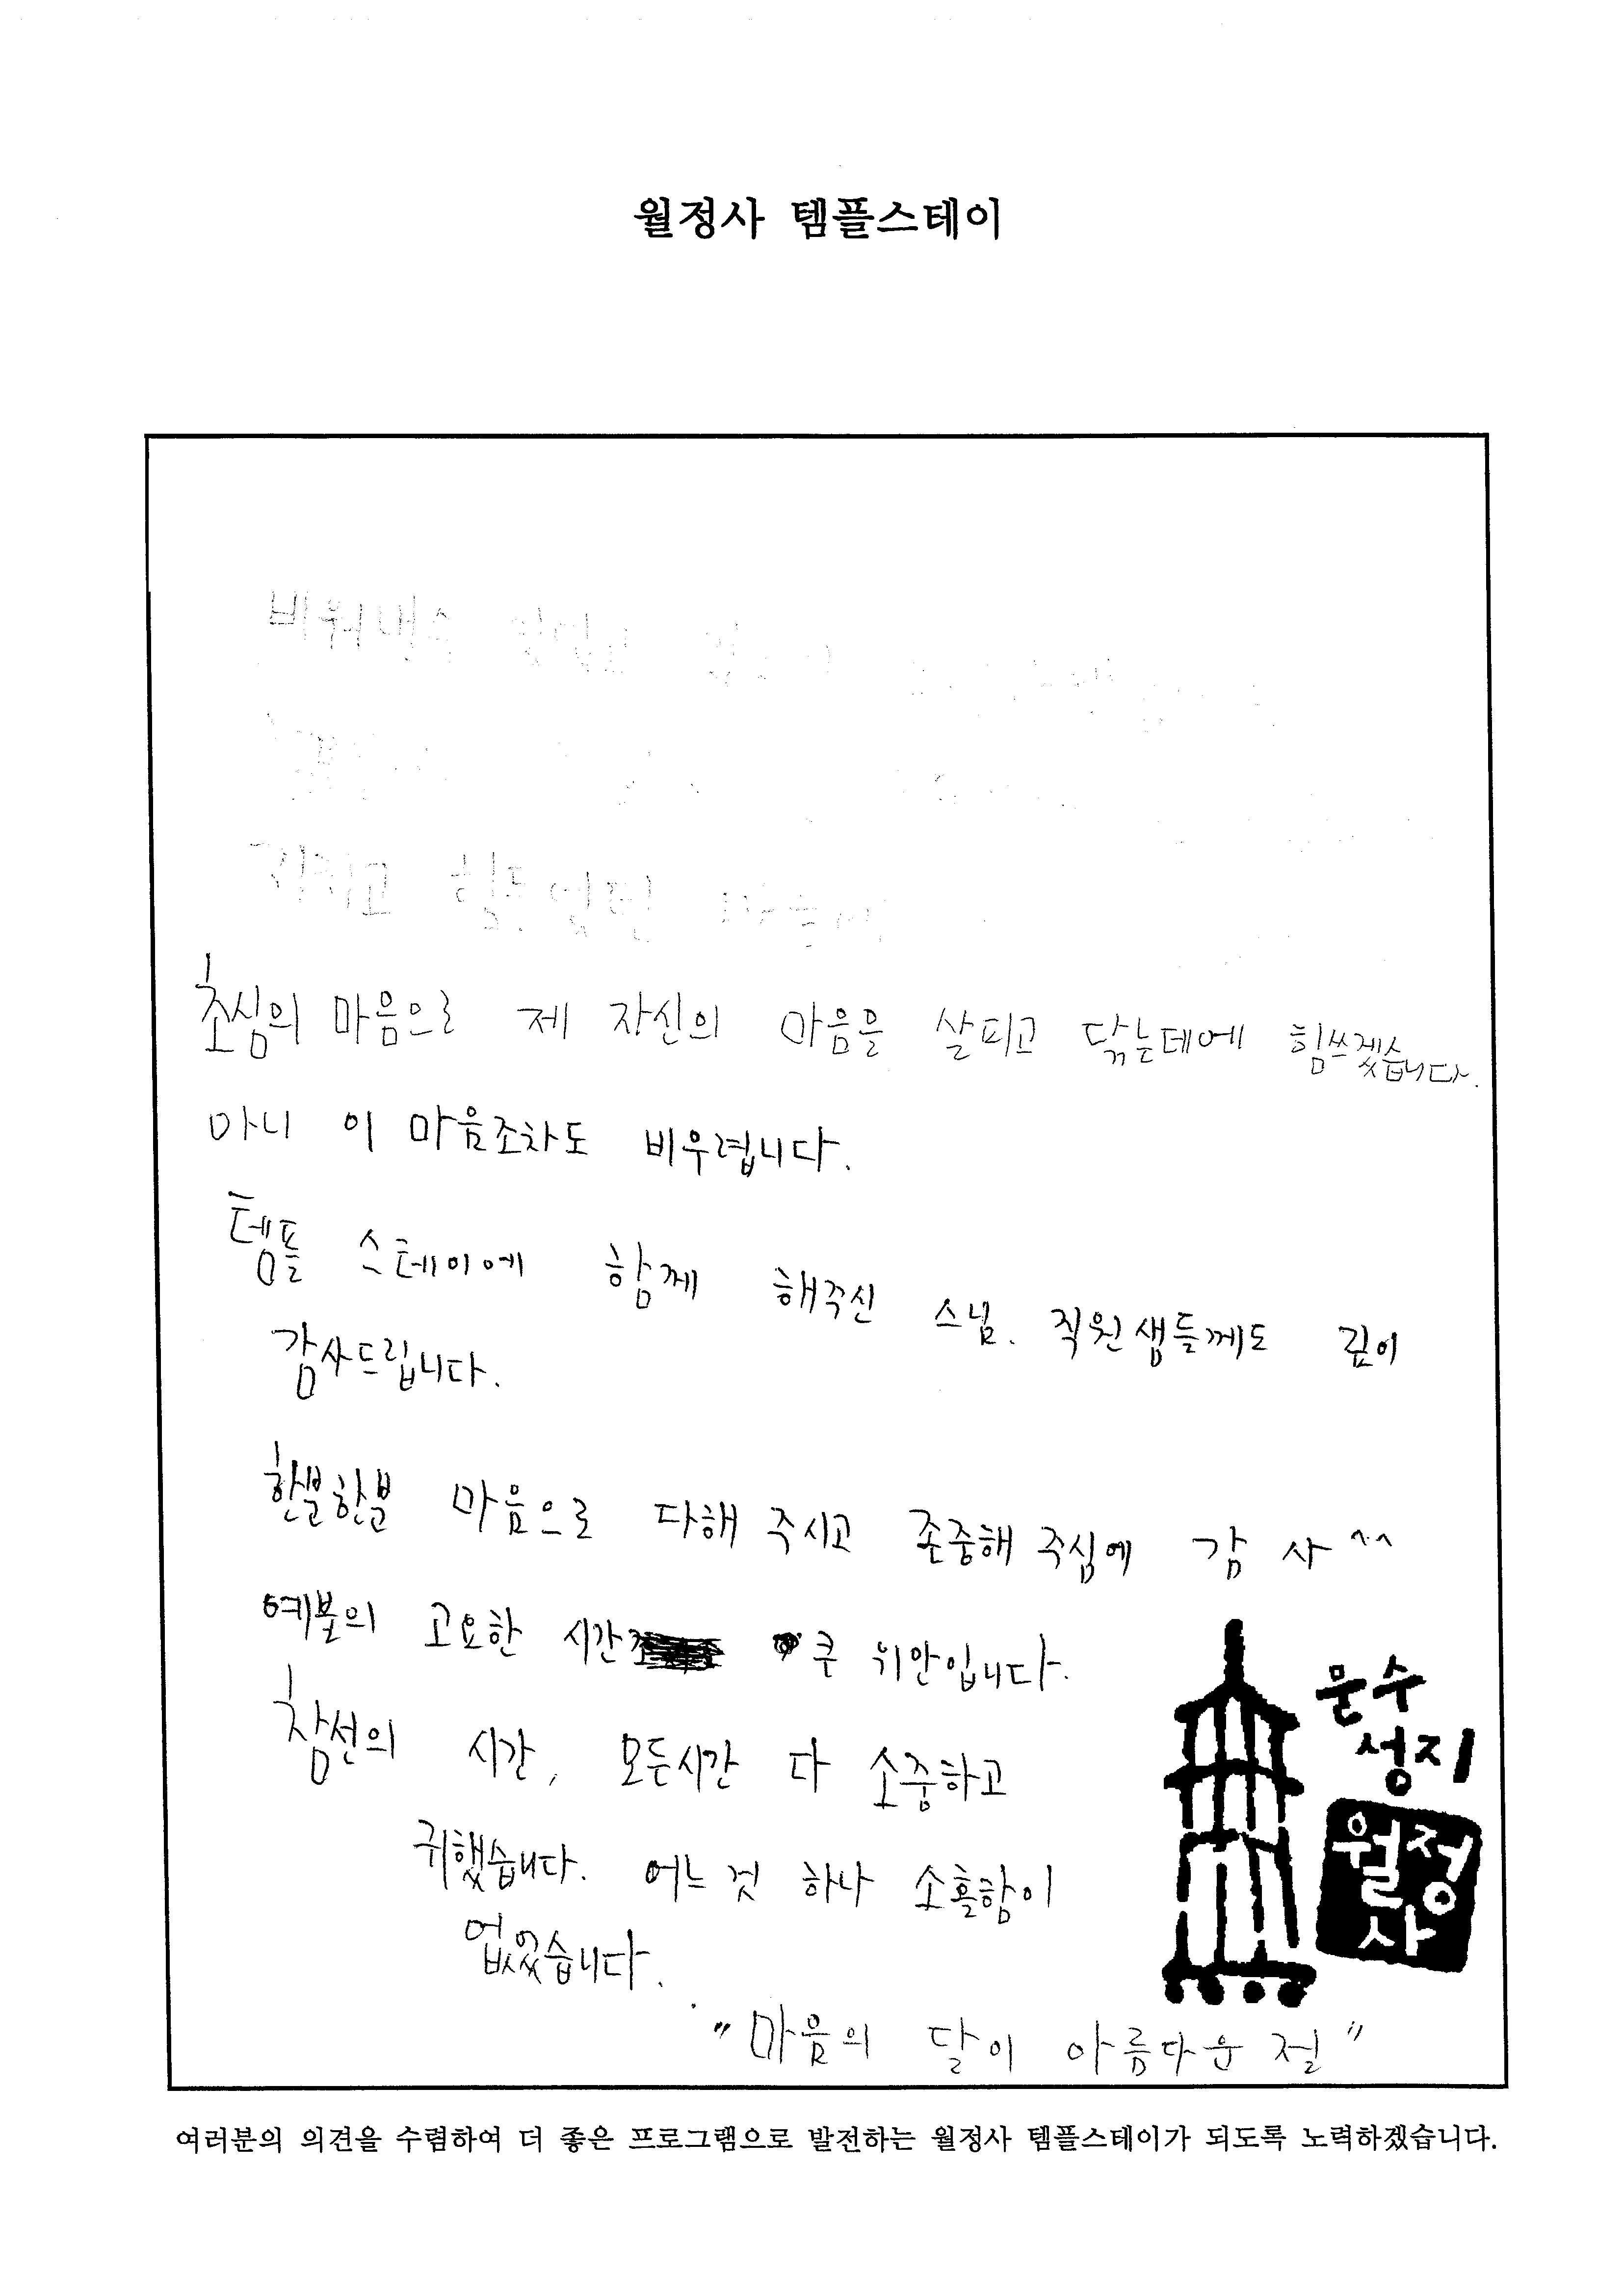 월정사 템플스테이
비워낼수
지치고 힘들었던
초심의 마음으로 제 자신의 마음을 살피고 닦는데에 힘쓰겠습니다.
아니 이 마음조차도 비우렵니다.
템플 스테이에 함께 해주신 스님. 직원샘들께도 깊이
감사드립니다.
한분한분 마음으로 다해 주시고 존중해 주심에 감 사 ^^
예불의 고요한 시간 큰 위안입니다.
참선의 시간, 모든시간 다 소중하고
귀했습니다. 어느것 하나 소홀함이
없었습니다.
"마음의 달이 아름다운 절"
문수
성지
월정
사
여러분의 의견을 수렴하여 더 좋은 프로그램으로 발전하는 월정사 템플스테이가 되도록 노력하겠습니다.